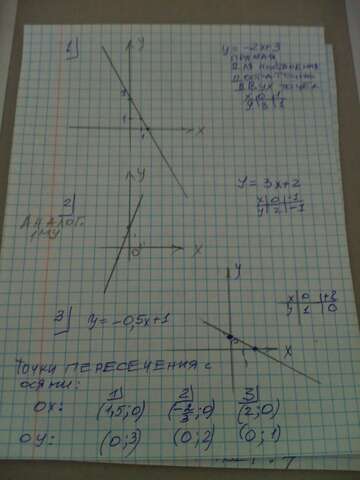 1)
y
y = -2x+3
ПРЯМАЯ
ДЛЯ ПОСТРОЕНИЯ
ДОСТАТОЧНО
ДВУХ ТОЧЕК
x 0 1
y 3 1
3
1
1
x
2)
АНАЛОГ.
1МУ
y
0
x
y = 3x+2
x 0 -1
y 2 -1
3) y = -0,5x+1
y
x
x 0 +2
y 1 0
ТОЧКИ ПЕРЕСЕЧЕНИЯ с
осями:
1) 2) 3)
OX: (1,5;0) (-2/3;0) (2;0)
OY: (0;3) (0;2) (0;1)